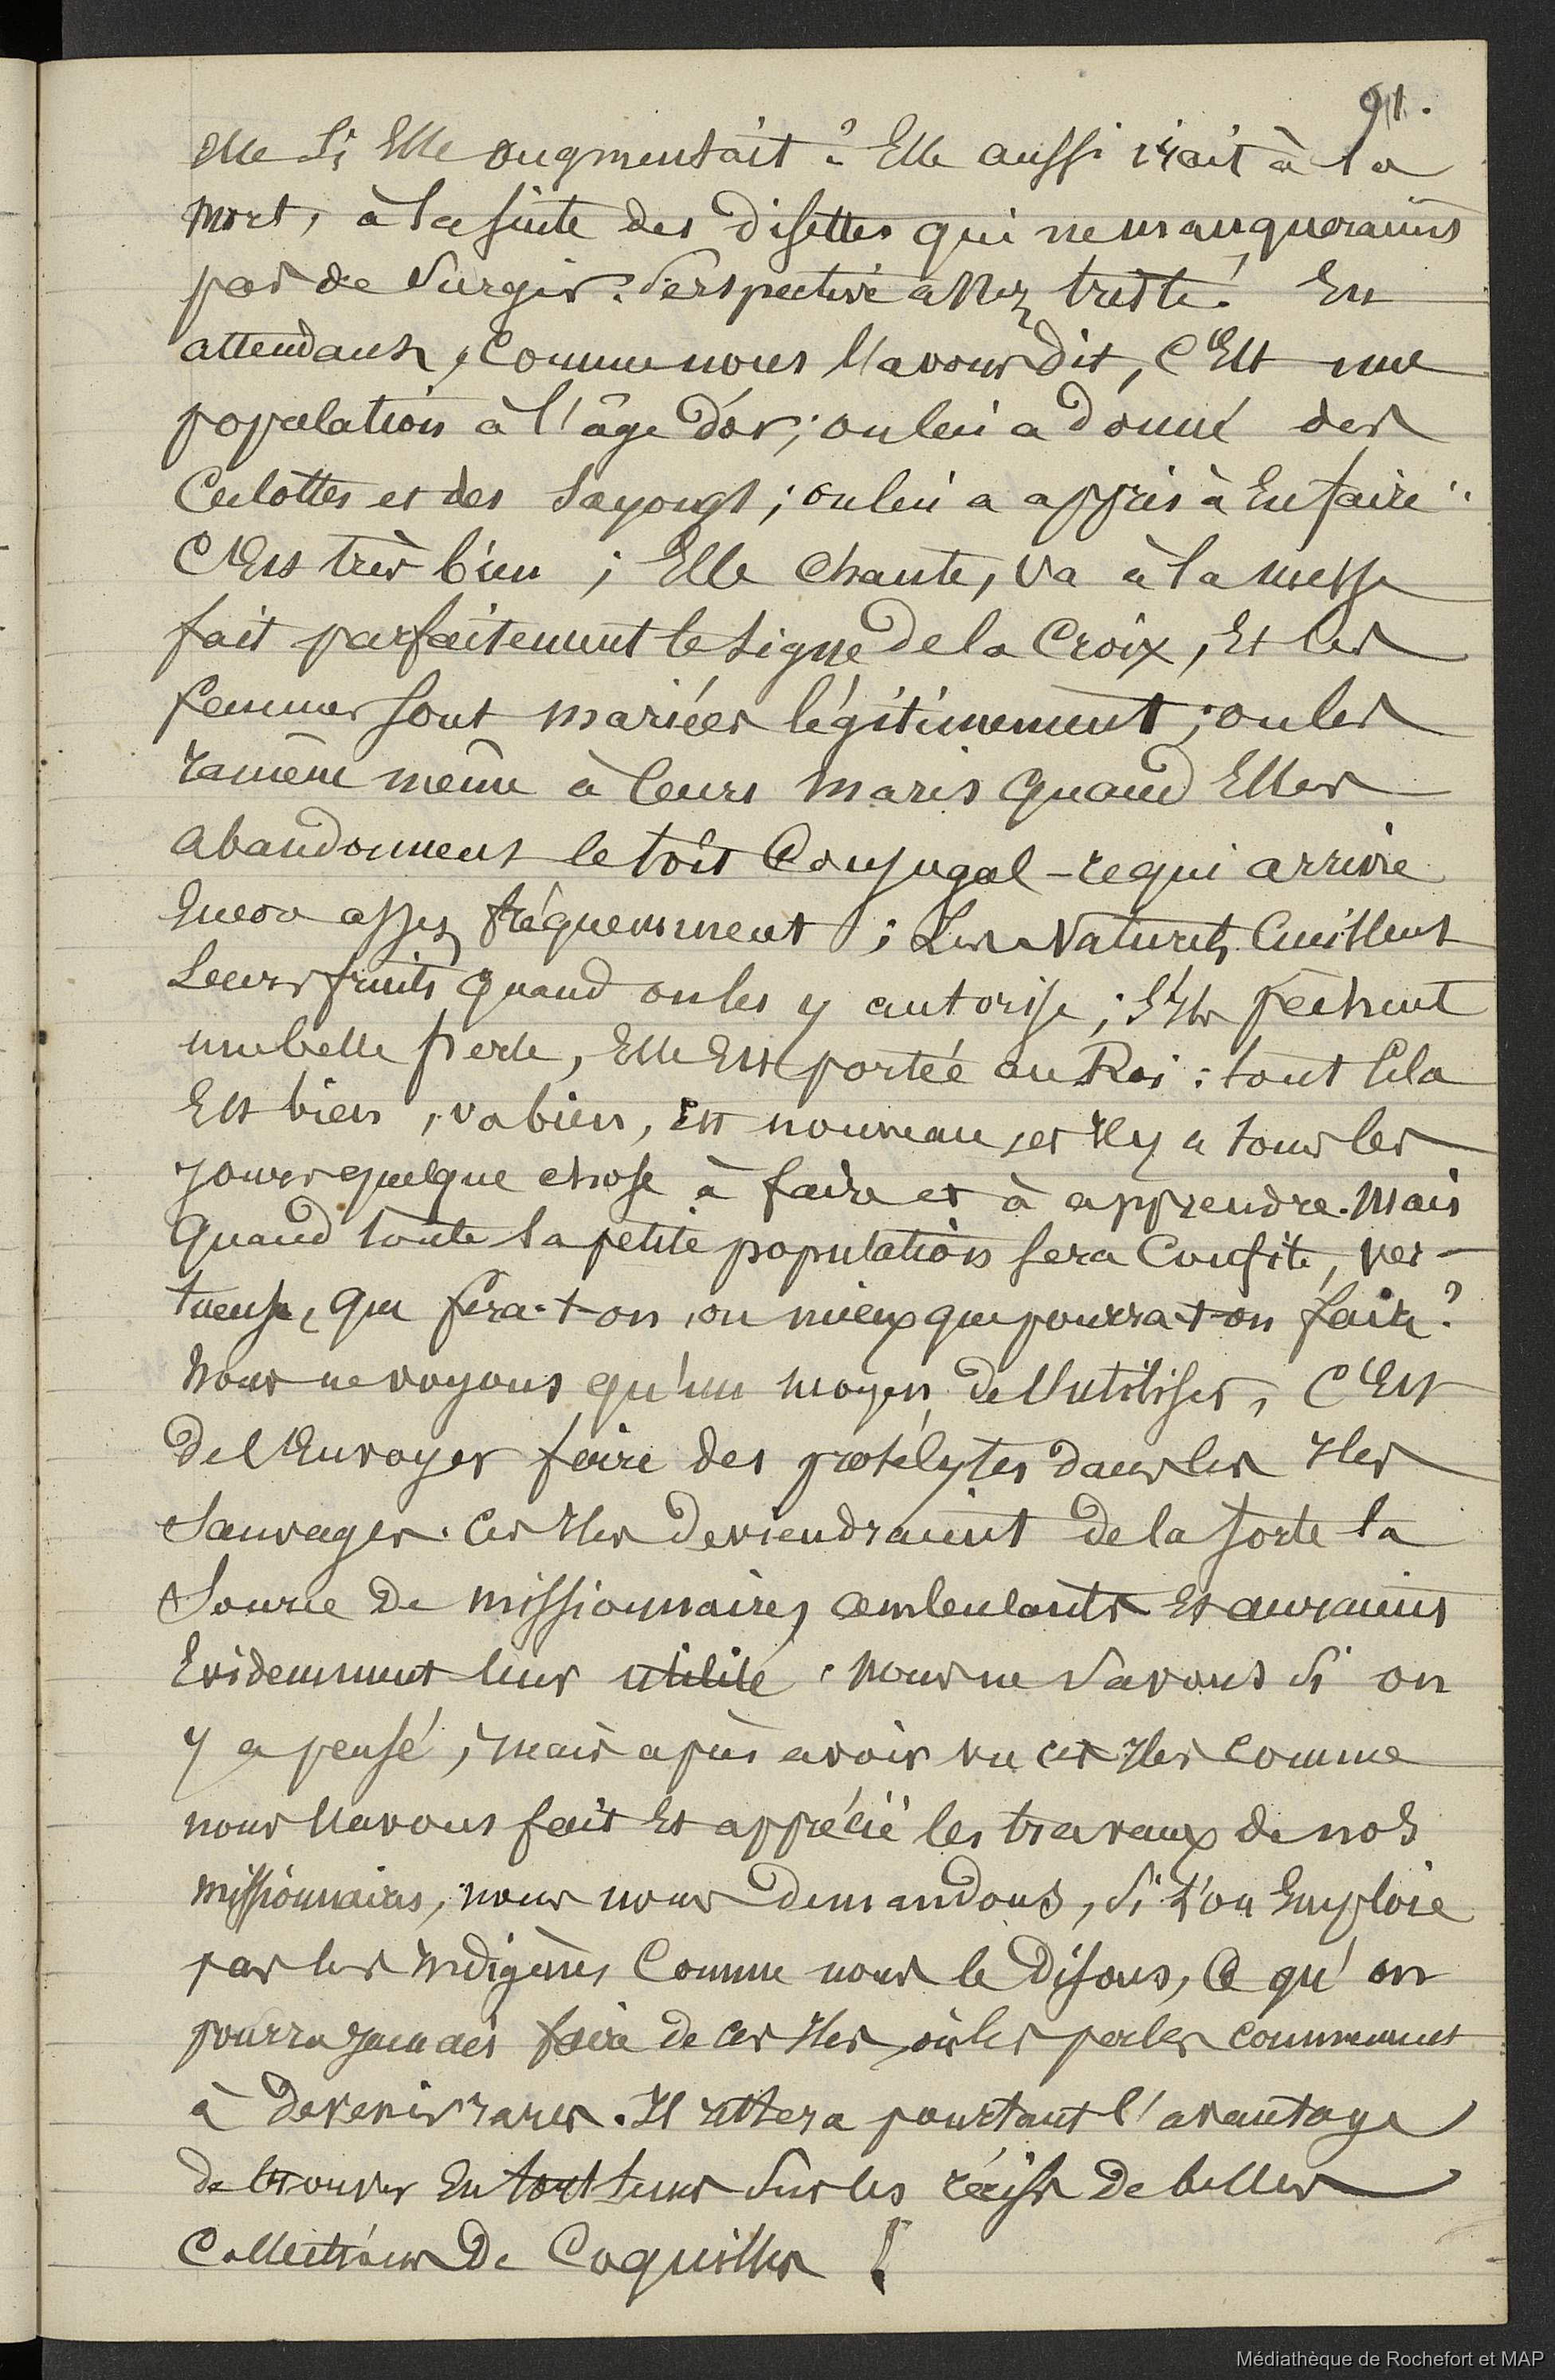 91.
elle si Elle augmentait ? Elle aussi irait à la
mort, à la suite des disettes qui ne manqueraient
pas de surgir. Perspective assez triste ! En
attendant, comme nous l'avons dit, c'Est une
population à l'âge d'or ; on lui a donné des
Culottes et des sayons ; on lui a appris à En faire :
C'Est très bien ; Elle chante, va à la messe
fait parfaitement le signe de la Croix, Et les
femmes sont mariées légitimement ; on les
ramène même à leurs maris quand Elles
abandonnent le toit Conjugal - ce qui arrive
Encor assez fréquemment ; Les Naturels Cueillent
Leurs fruits quand on les y autorise ; S'Ils pêchent
une belle perle, Elle Est portée au Roi : tout Cela
Est bien, va bien, Est nouveau, et Il y a tous les
jours quelque chose à faire et à apprendre. Mais
Quand toute la petite population sera Confite, ver-
tueuse, que fera-t-on, ou mieux que pourra-t-on faire ?
Nous ne voyons qu'un moyen de l'utiliser, C'Est
de l'Envoyer faire des prosélytes dans les Iles
Sauvages. Ces Iles deviendraient de la sorte la
Source de missionnaires ambulants Et auraient
Evidemment leur utilité. Nous ne savons si on
y a pensé, mais après avoir vu ces Iles comme
nous l'avons fait Et apprécié les travaux de nos
missionnaires, nous nous demandons, si l'on Emploie
pas les Indigènes Comme nous le disons, Ce qu'on
pourra jamais faire de ces Iles où les perles commencent
à devenir rares. Il restera pourtant l'avantage
de trouver En tout tems sur les récifs de belles
Collections de Coquilles !
Médiathèque de Rochefort et MAP